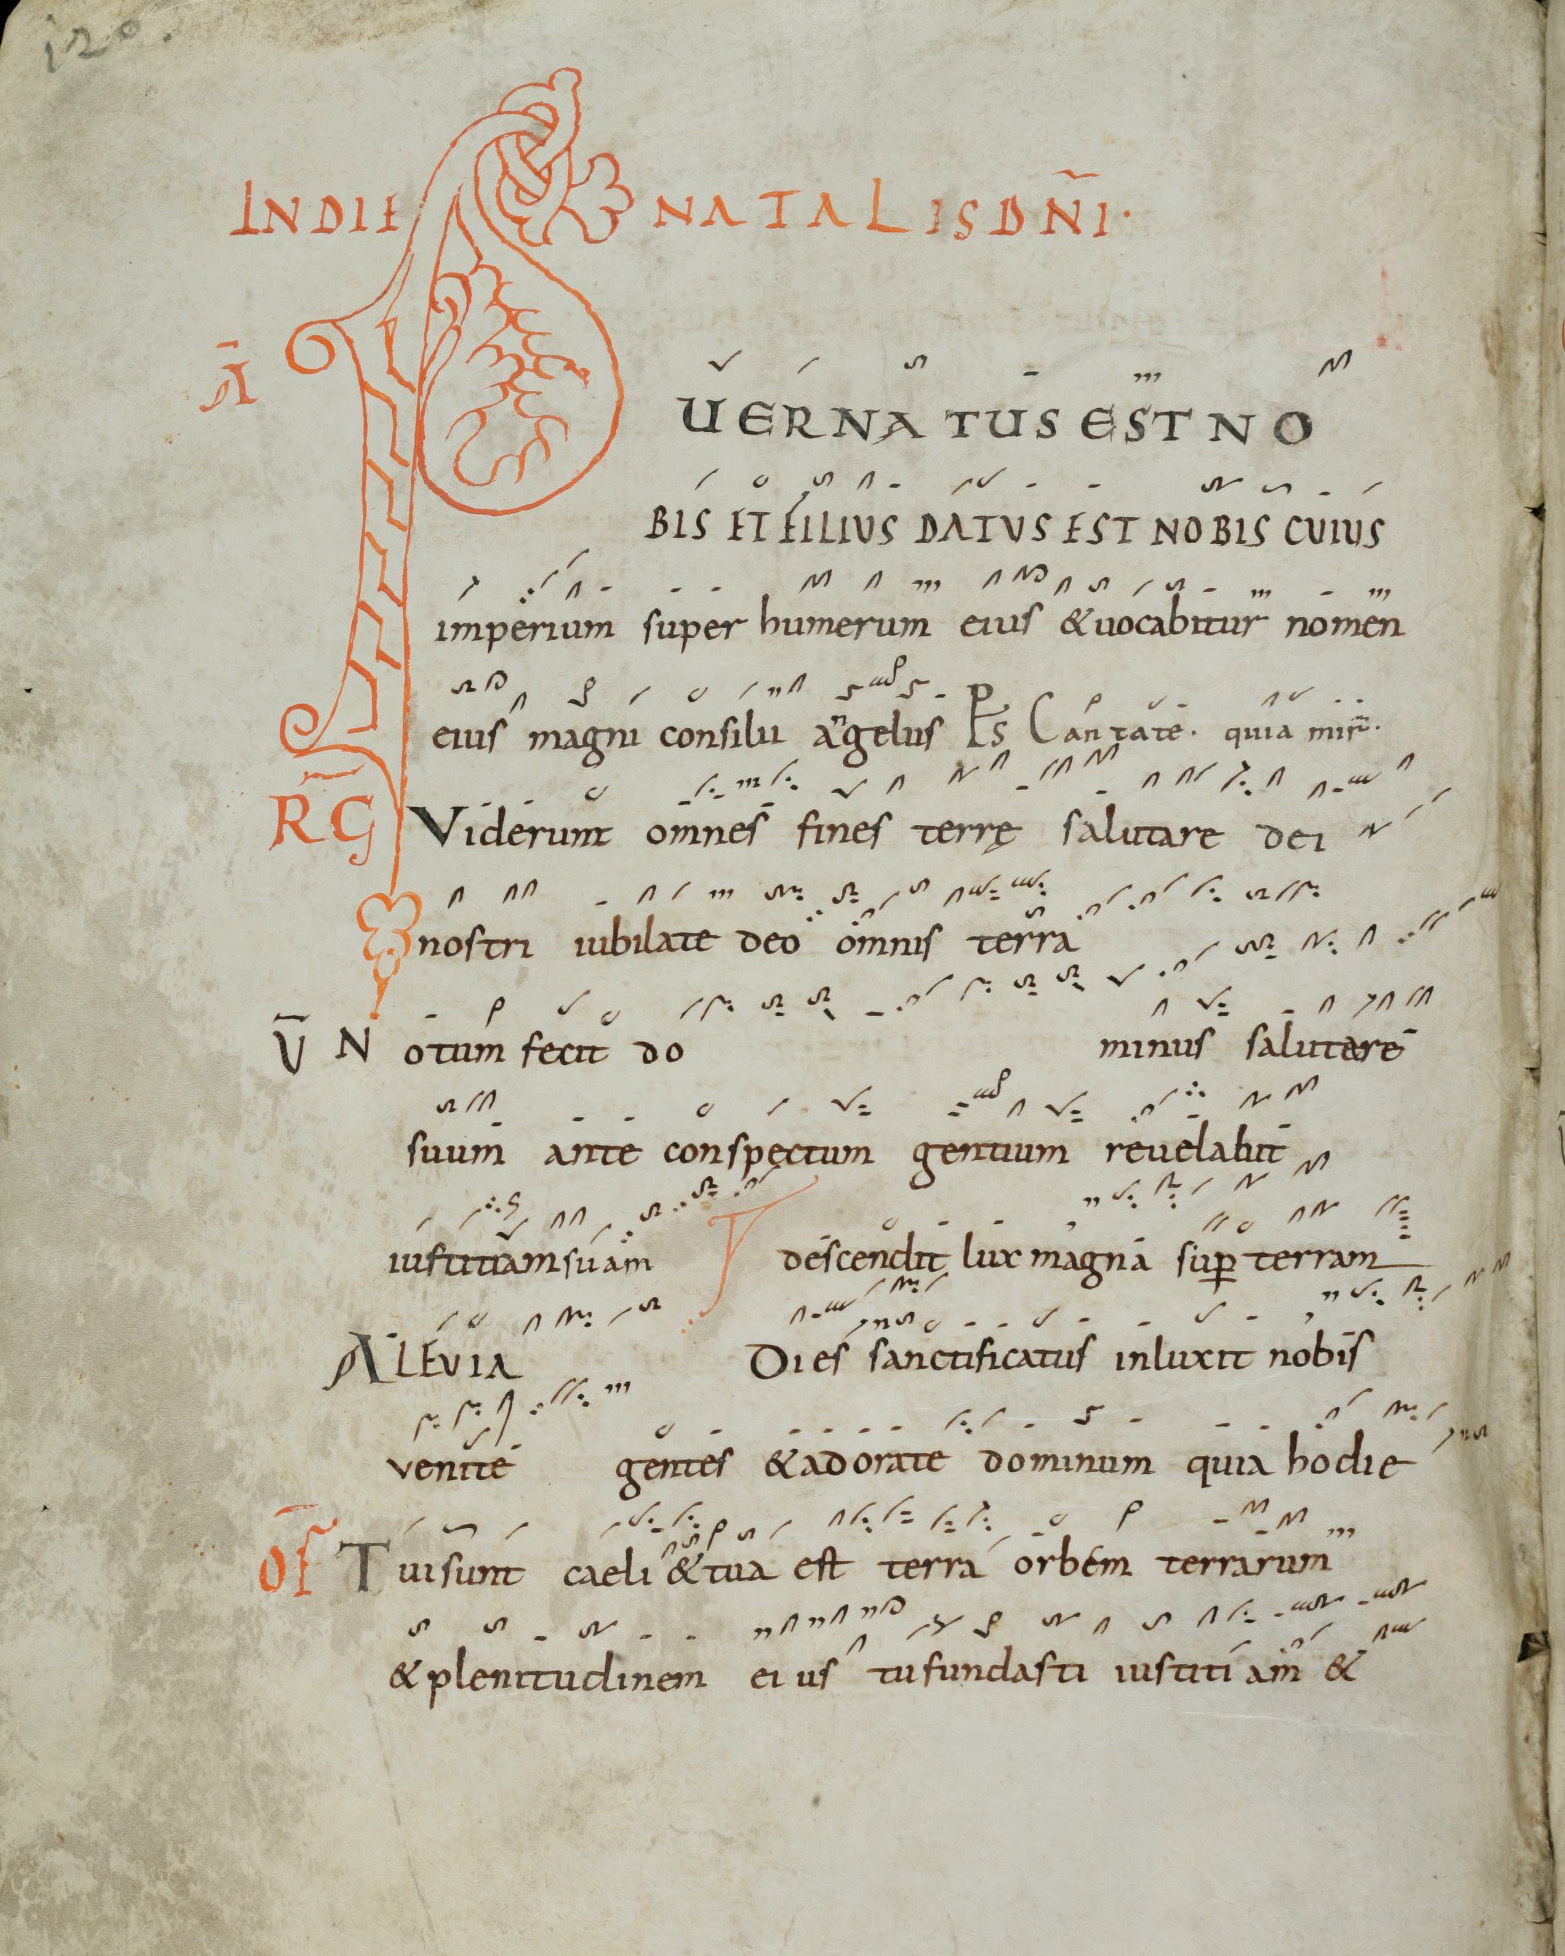 120.
IN DIE NATALIS DÑI.
Ā P
UER NATUS EST NO
BIS ET FILIUS DATUS EST NOBIS CUIUS
imperium super humerum eius & uocabitur nomen
eius magni consilii angelus Ps Cantate. quia mir.
RG Viderunt omnes fines terrę salutare dei
nostri iubilate deo omnis terra
V̄ Notum fecit do minus salutare
suum ante conspectum gentium reuelabit
iustitiam suam descendit lux magna sup terram
ALEVIA Dies sanctificatus inluxit nobis
venite gentes & adorate dominum quia hodie
OF Tui sunt caeli & tua est terra orbem terrarum
& plenitudinem eius tu fundasti iustitiam &